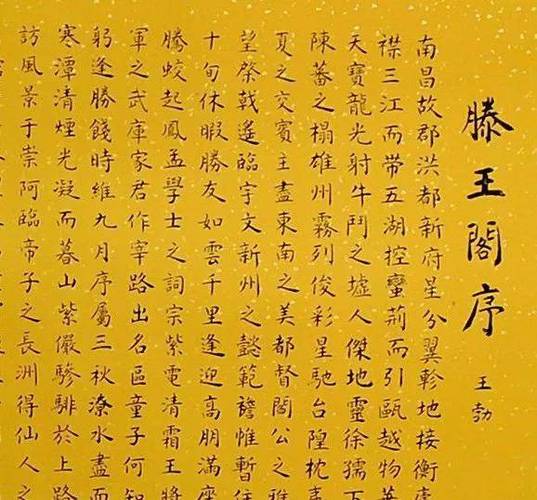 滕王閣序
王勃
南昌故郡洪都新府星分翼軫地接衡
襟三江而帶五湖控蠻荊而引甌越物華
天寶龍光射牛鬥之墟人傑地靈徐孺下
陳蕃之榻雄州霧列俊彩星馳台隍枕夷
夏之交賓主盡東南之美都督閻公之雅
望棨戟遙臨宇文新州之懿範襜惟暫住
十旬休暇勝友如雲千里逢迎高朋滿座
騰蛟起鳳孟學士之詞宗紫電清霜王將
軍之武庫家君作宰路出名區童子何知
躬逢勝餞時維九月序屬三秋潦水盡而
寒潭清煙光凝而暮山紫儼驂騑於上路
訪風景于崇阿臨帝子之長洲得仙人之